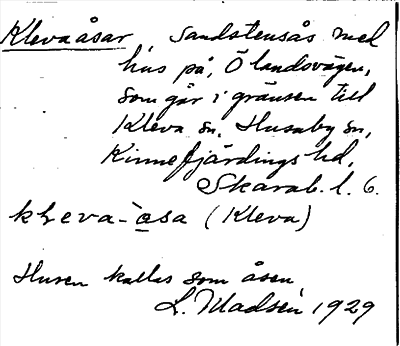 Klevaåsar, Sandstensås med
hus på, Ölandsvägen,
som går i gränsen till
Kleva sn, Husaby sn,
Kinnefjärdings hd,
Skarab. l. 6.
kleva-åsa (Kleva)
Husen kallas som åsen,
L. Madsén 1929